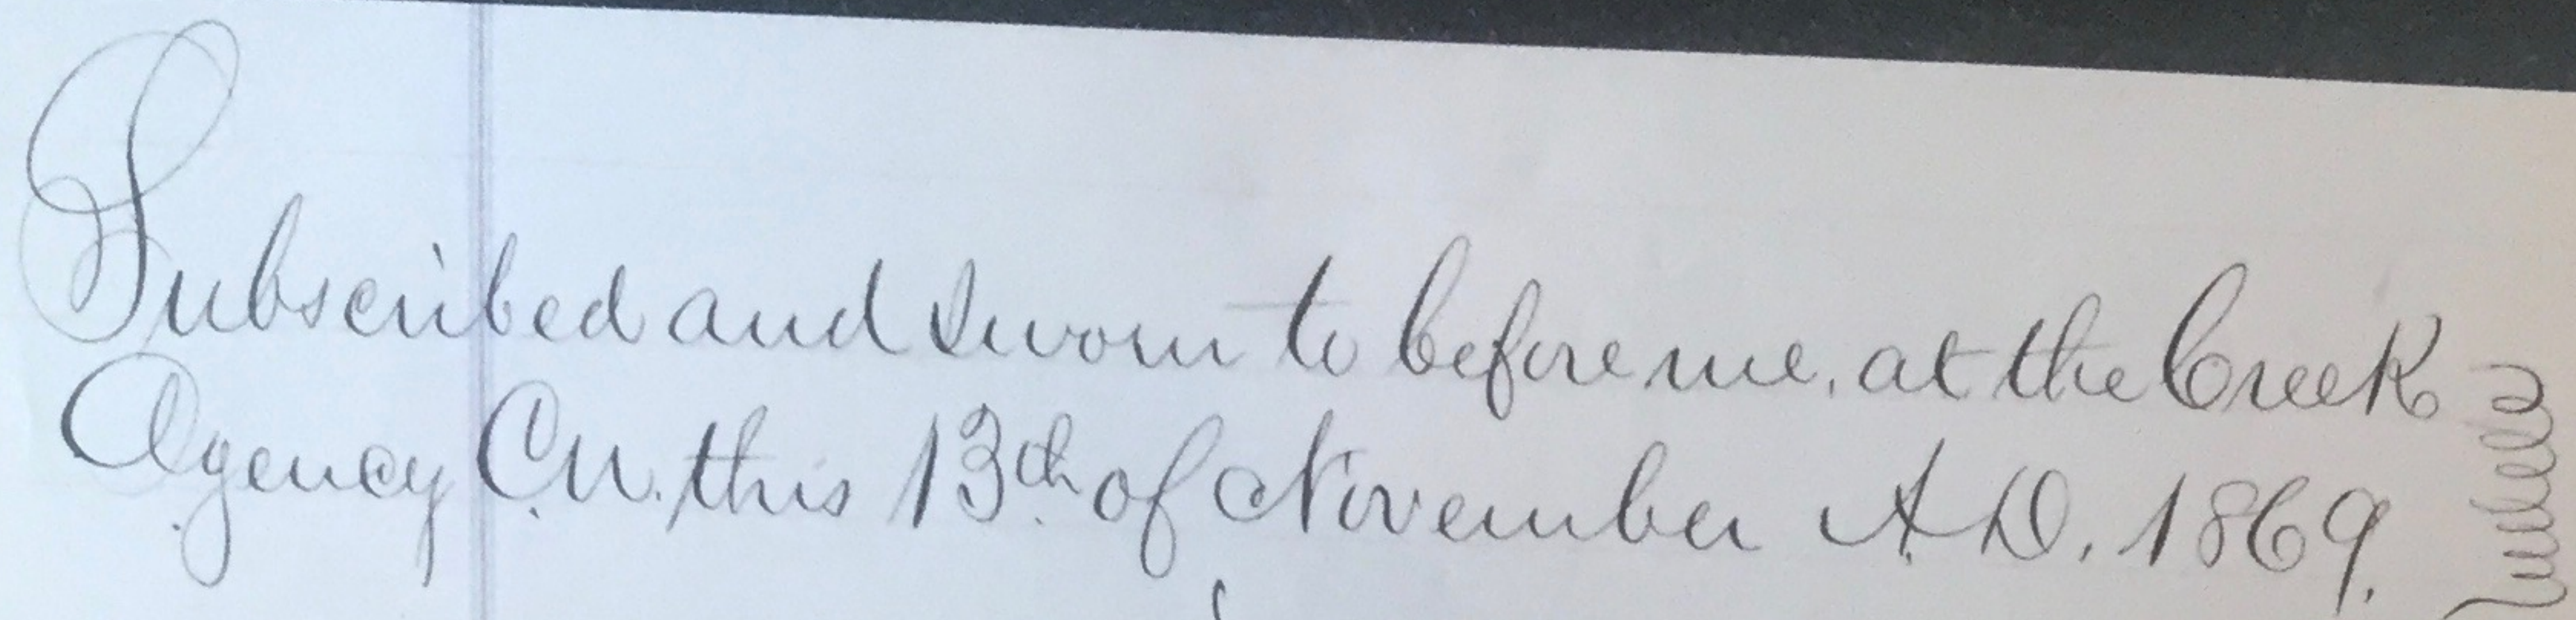 Subscribed and Sworn to before me, at the Creek
Agency C.N. this 13th of November A.D. 1869.